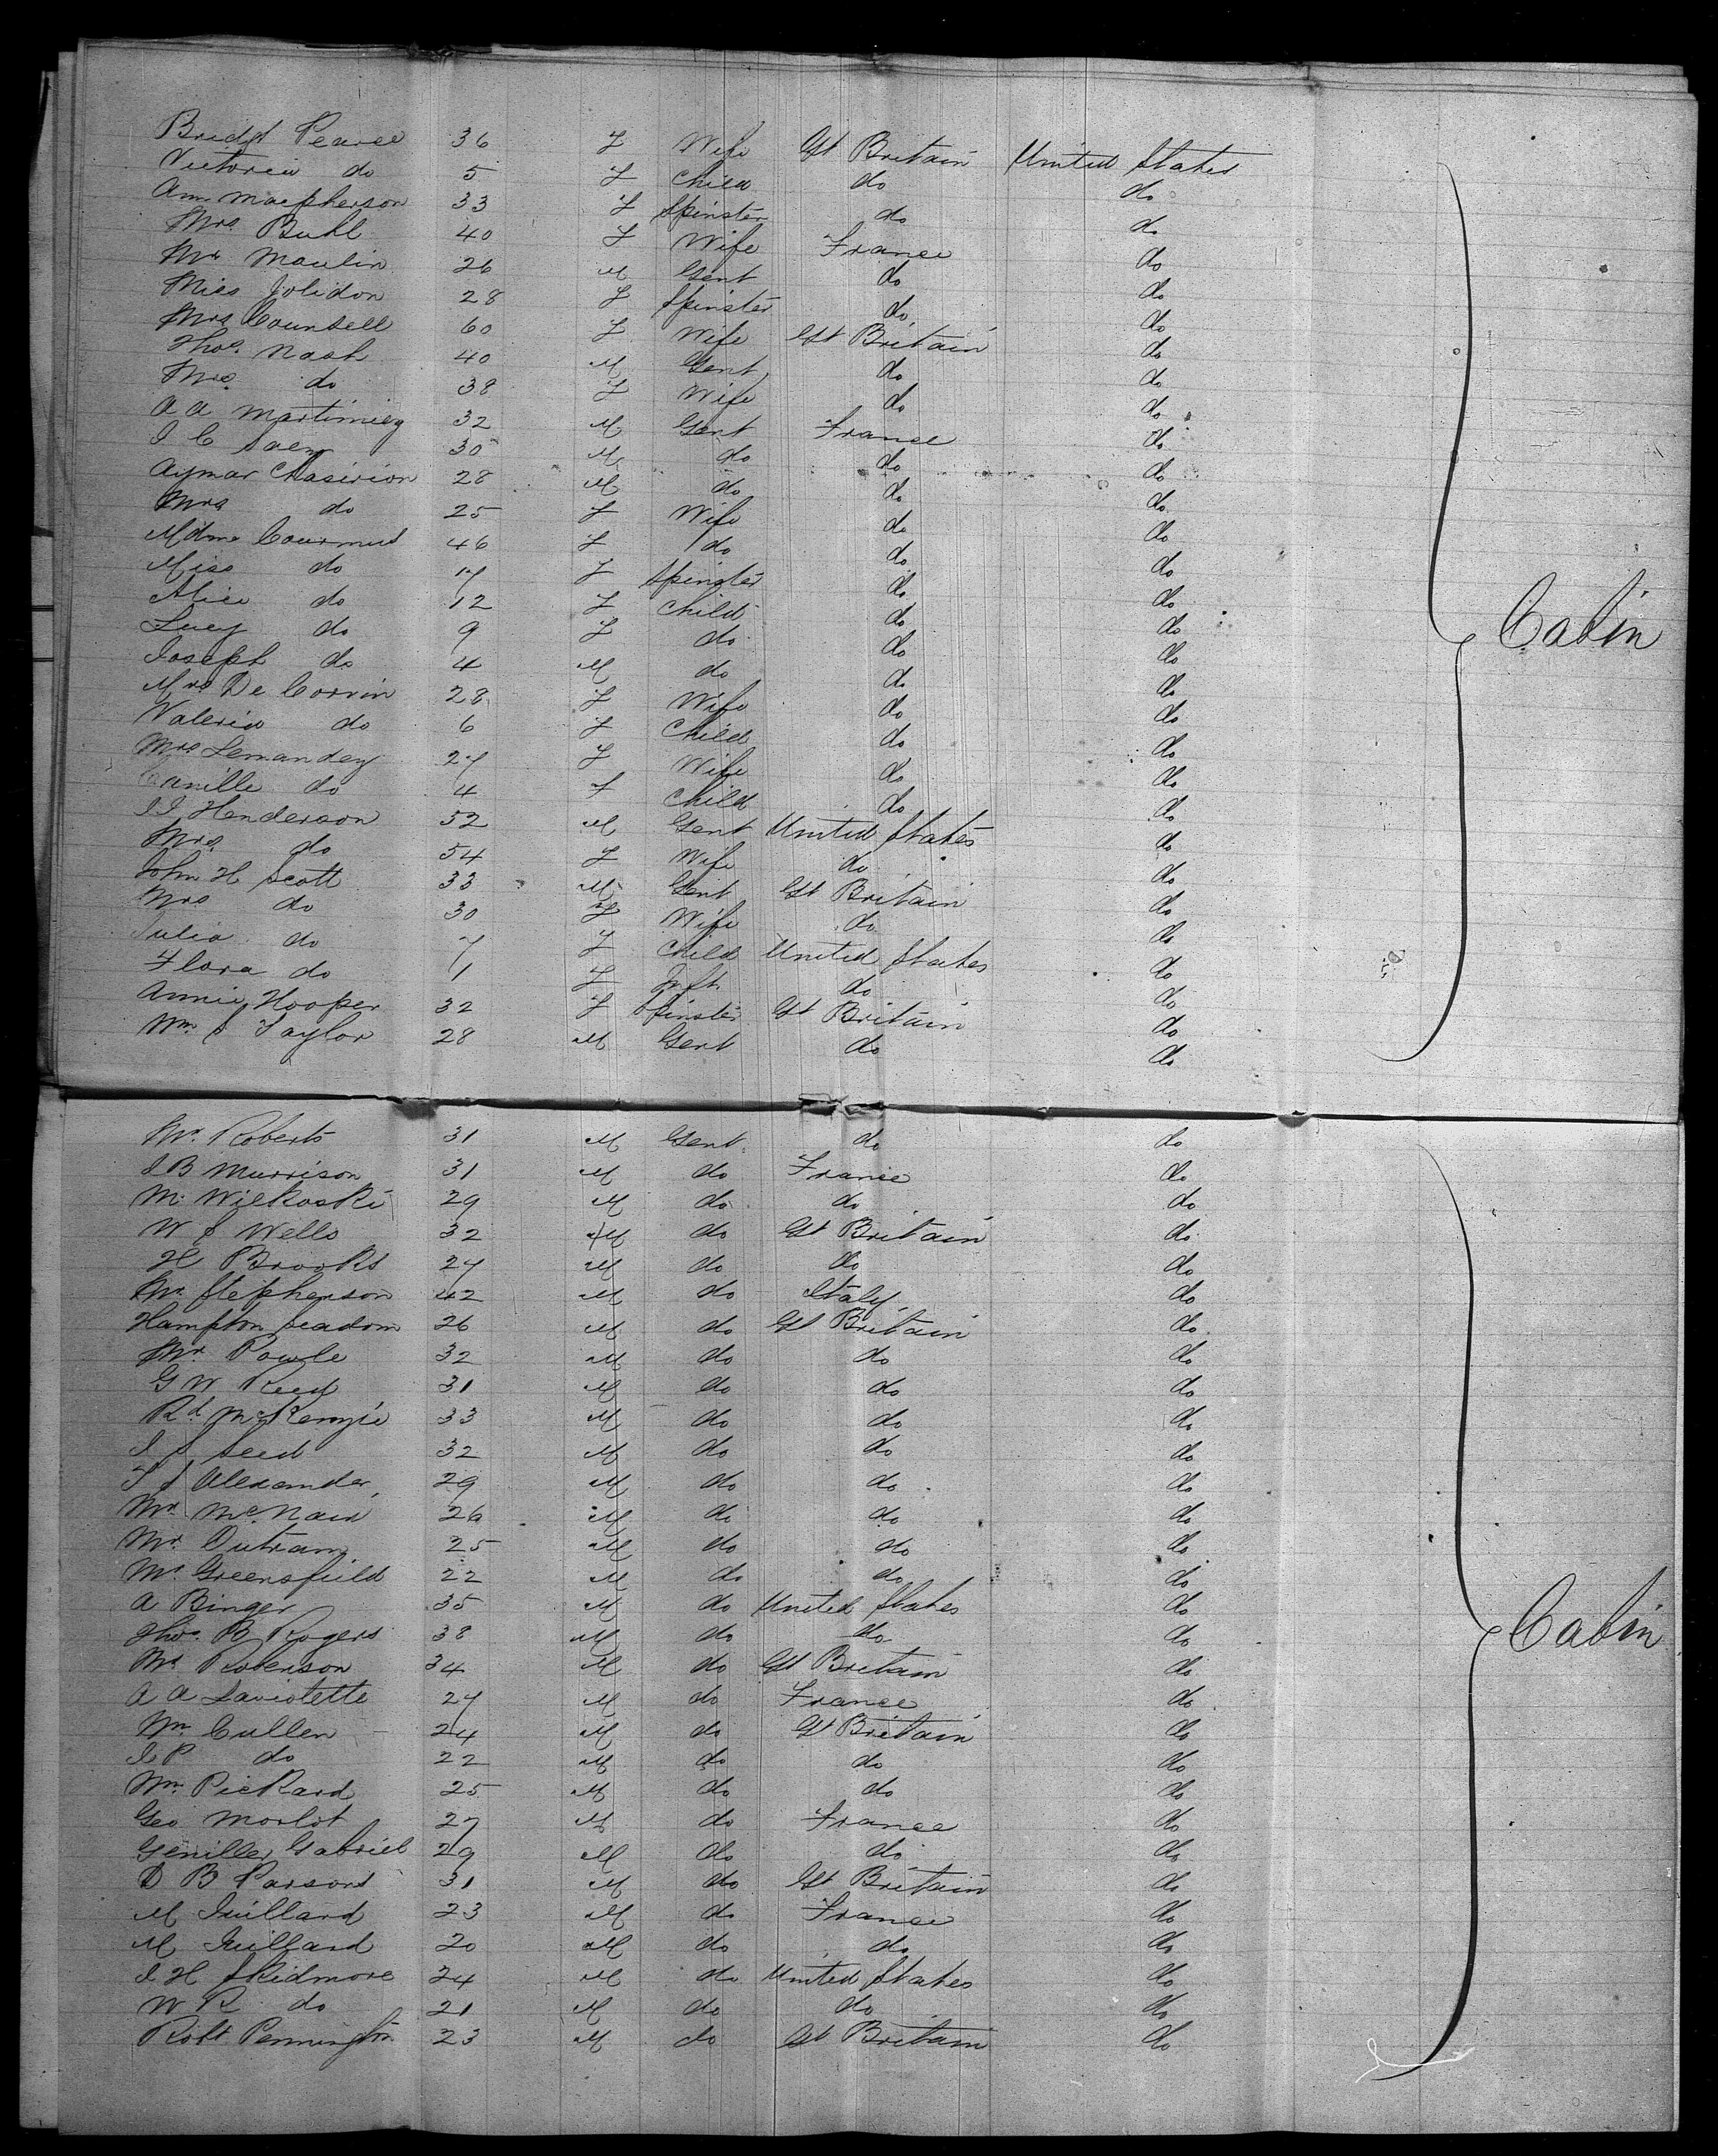 Bridgt Pearce 36 F Wife Gt Britain United States
Victoria do 5 F Child do do
Ann Macpherson 33 F Spinster do do
Mrs Buhl 40 F Wife France do
Mr Maulin 26 M Gent do do
Miss Jolidon 28 F Spinster do do
Mrs Counsell 60 F Wife Gt Britain do
Thos Nash 40 M Gent do do
Mrs do 38 F Wife do do
A A Martiniez 32 M Gent France do
J C Saez 30 M do do do
Aymar Chasirion 28 M do do do
Mrs do 25 F Wife do do
Mdme Cournut 46 F do do do
Miss do 17 F Spinster do do
Alice do 12 F Child do do
Lucy do 9 F do do do
Joseph do 4 M do do do
Mrs De Corvin 28 F Wife do do
Valeria do 6 F Child do do
Mrs Lemandey 27 F Wife do do
Camille do 4 F Child do do
J J Henderson 52 M Gent United States do
Mrs do 54 F Wife do do
John H Scott 33 M Gent Gt Britain do
Mrs do 30 F Wife do do
Julia do 7 F Child United States do
Flora do 1 F Inft do do
Annie Hooper 32 F Spinster Gt Britain do
Wm J Taylor 28 M Gent do do
Cabin
Mr Roberts 31 M Gent do do
J B Murrison 31 M do France do
M. Wilkoski 29 M do do do
W J Wells 32 M do Gt Britain do
H Brooks 27 M do do do
Mr Stephenson 42 M do Italy do
Hampton Seadom 26 M do Gt Britain do
Mr Powle 32 M do do do
G W Reed 31 M do do do
Rd McKenzie 33 M do do do
J J Seed 32 M do do do
T J Alexander 29 M do do do
Mr McNair 26 M do do do
Mr Outram 25 M do do do
Mr Greensfield 22 M do do do
A Binger 35 M do United States do
Thos B Rogers 38 M do do do
Mr Roberson 34 M do Gt Britain do
A A Laviolette 27 M do France do
Wm Cullen 24 M do Gt Britain do
J P do 22 M do do do
Wm Pickard 25 M do do do
Geo Morlot 27 M do France do
Geniller Gabriel 29 M do do do
D B Parsons 31 M do Gt Britain do
M Juillard 23 M do France do
M Juillard 20 M do do do
J H Skidmore 24 M do United States do
W R do 21 M do do do
Robt Pennington 23 M do Gt Britain do
Cabin